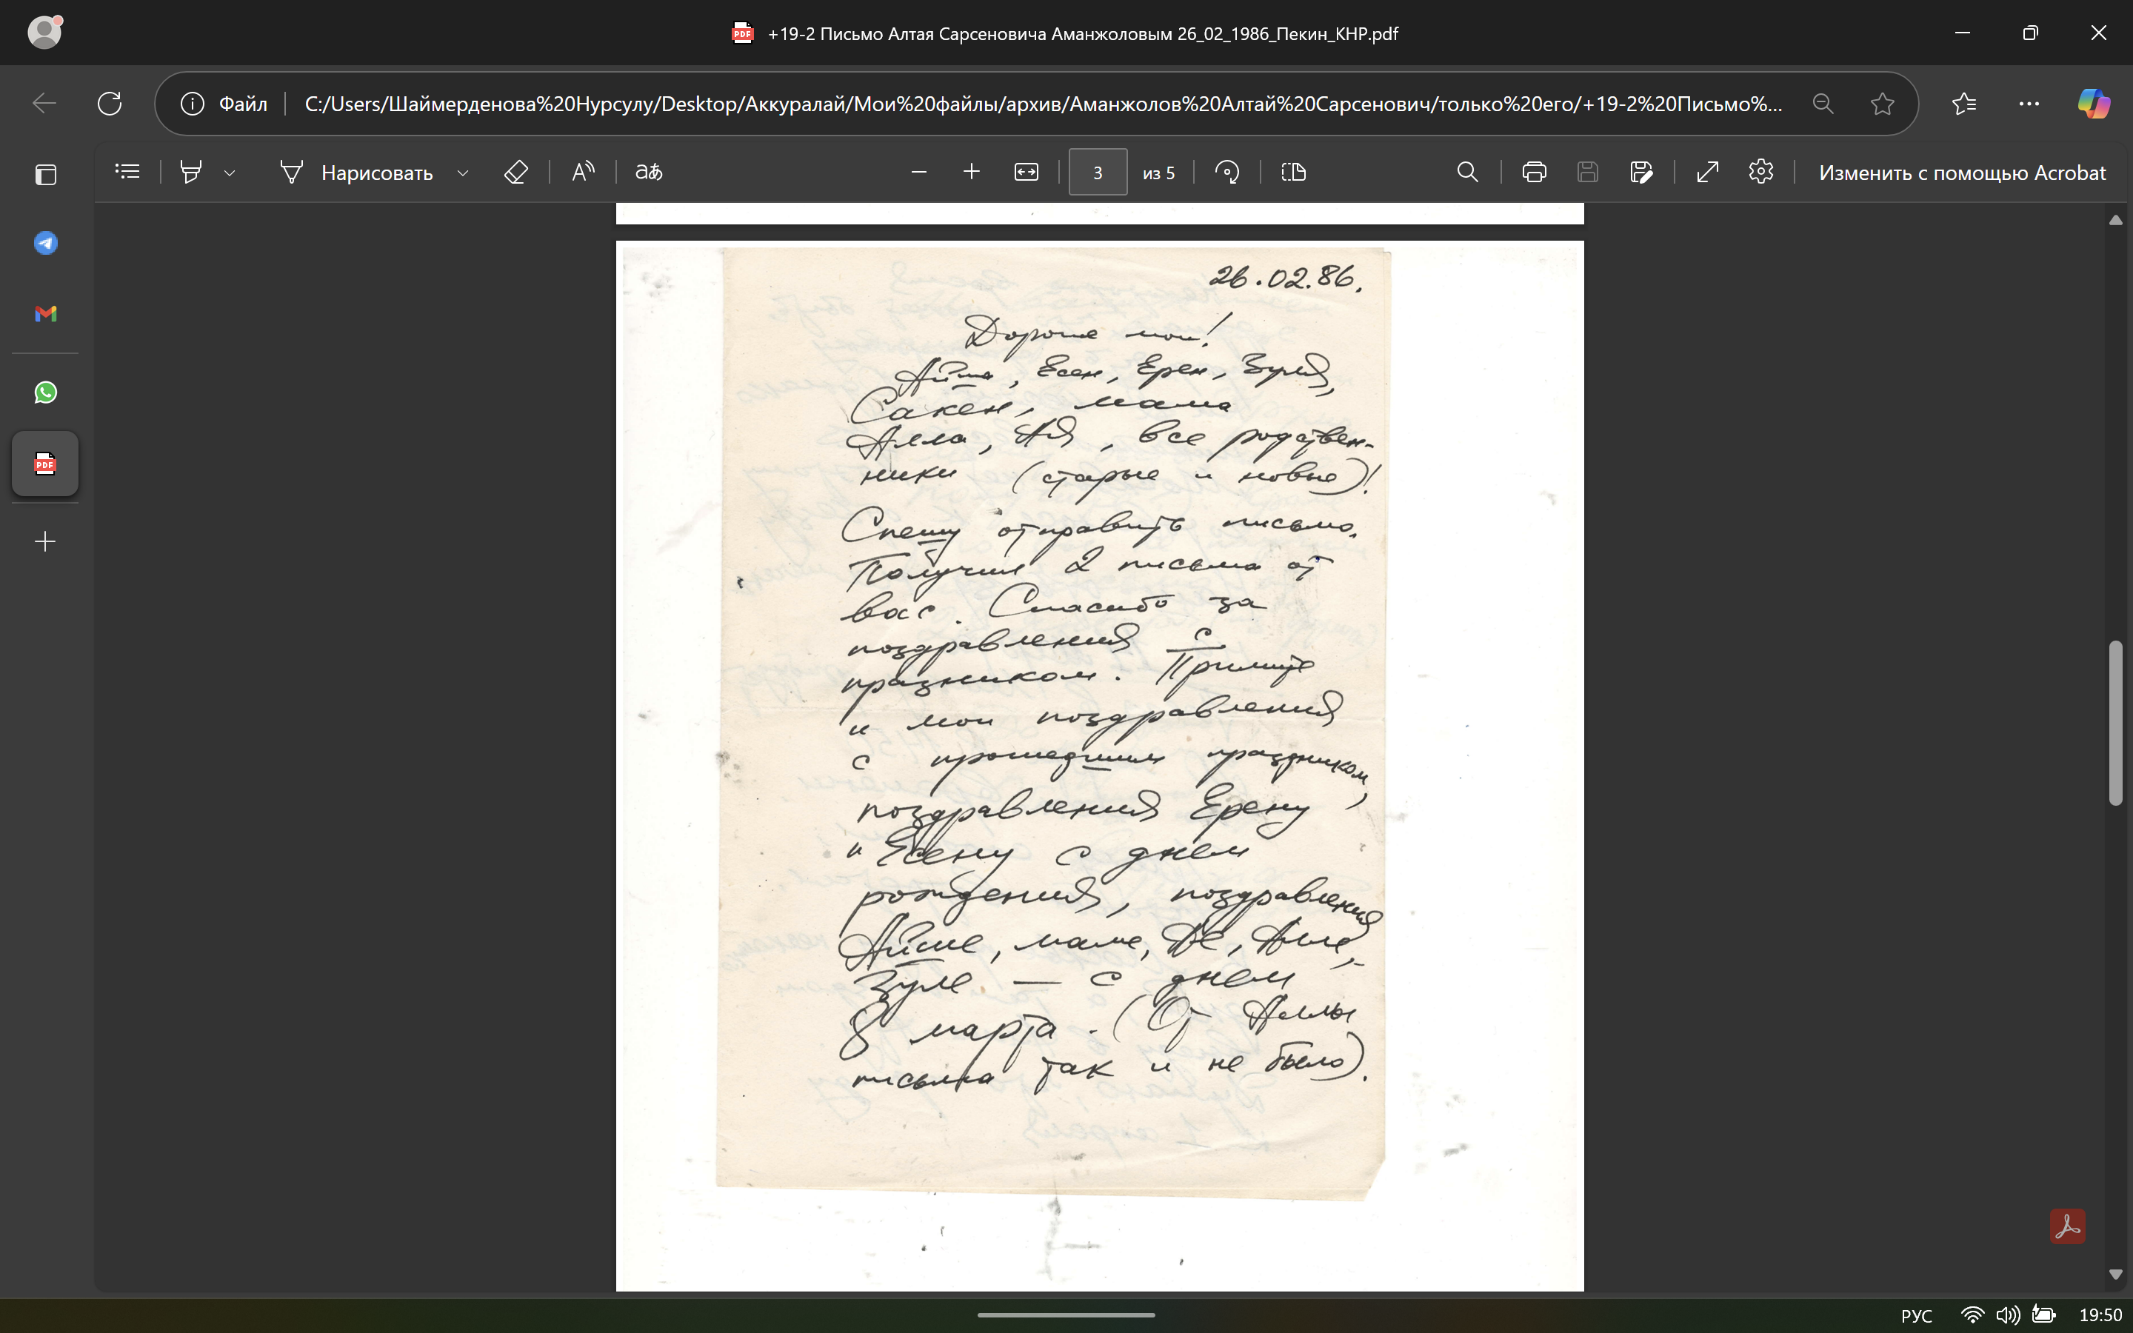 +19-2 Письмо Алтая Сарсеновича Аманжоловым 26_02_1986_Пекин_КНР.pdf
Файл
C:/Users/Шаймерденова%20Нурсулу/Desktop/Аккуралай/Мои%20файлы/архив/Аманжолов%20Алтай%20Сарсенович/только%20его/+19-2%20Письмо%...
Нарисовать
3 из 5
Изменить с помощью Acrobat
26.02.86.
Дорогие мои!
Айша, Есен, Ерен, Зуля,
Сакен, мама
Алла, Ая, все родствен-
ники (старые и новые)!
Спешу отправить письмо.
Получил 2 письма от
вас. Спасибо за
поздравления с
праздником. Примите
и мои поздравления
с прошедшим праздником,
поздравления Ерену
и Есену с днем
рождения, поздравления
Айше, маме, Ае, Алле,
Зуле — с днем
8 марта. (От Аллы
письма так и не было).
РУС
19:50